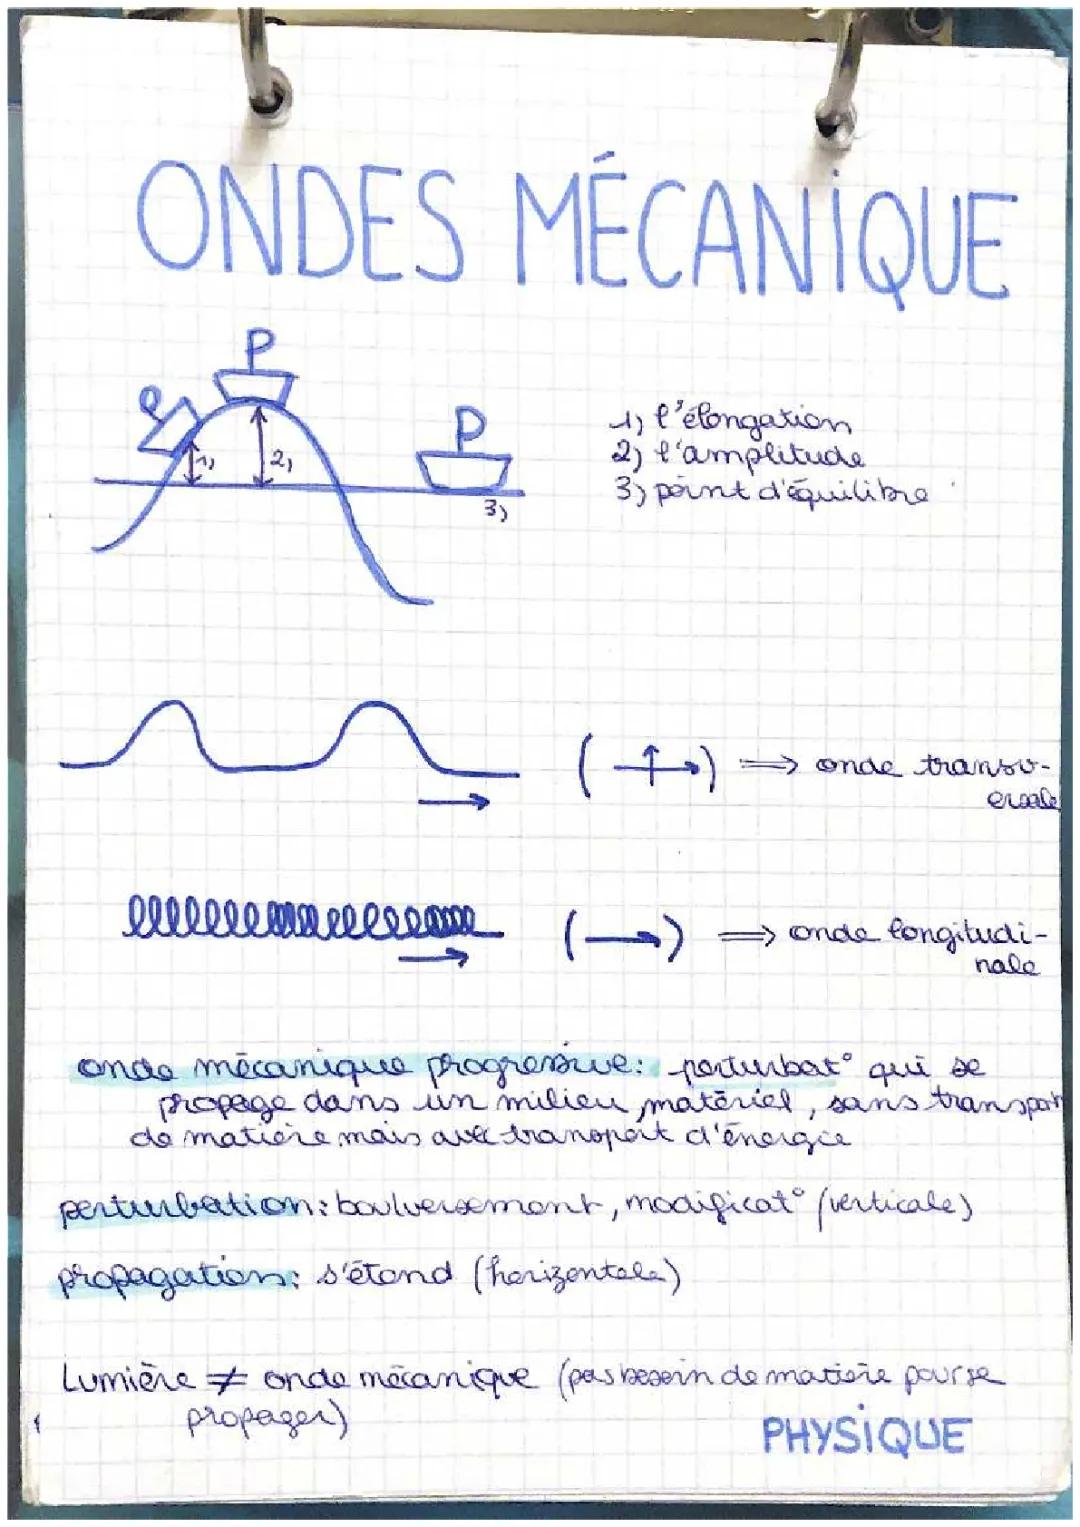 ONDES MÉCANIQUE
P
P
P
1)
2)
3)
1) l'élongation
2) l'amplitude
3) point d'équilibre
(→) ⟹ onde transv-
ersale
(→) ⟹ onde longitudi-
nale
onde mécanique progressive: perturbat° qui se
propage dans un milieu matériel, sans transport
de matière mais avec transport d'énergie
perturbation: boulversement, modificat° (verticale)
propagation: s'étend (horizontale)
Lumière ≠ onde mécanique (pas besoin de matière pour se
propager)
PHYSIQUE
1